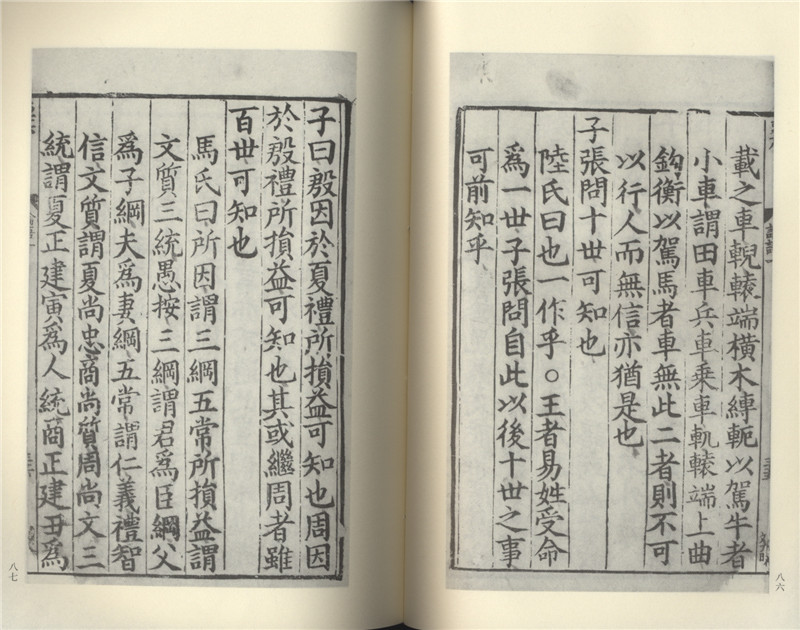 載之車輗轅端橫木縛軛以駕牛者
小車謂田車兵車乗車軏轅端上曲
鈎衡以駕馬者車無此二者則不可
以行人而無信亦猶是也
子張問十世可知也
陸氏曰也一作乎○王者易姓受命
爲一世子張問自此以後十世之事
可前知乎
八六
子曰殷因於夏禮所損益可知也周因
於殷禮所損益可知也其或繼周者雖
百世可知也
馬氏曰所因謂三綱五常所損益謂
文質三統愚按三綱謂君爲臣綱父
爲子綱夫爲妻綱五常謂仁義禮智
信文質謂夏尚忠商尚質周尚文三
統謂夏正建寅爲人統商正建丑爲
八七